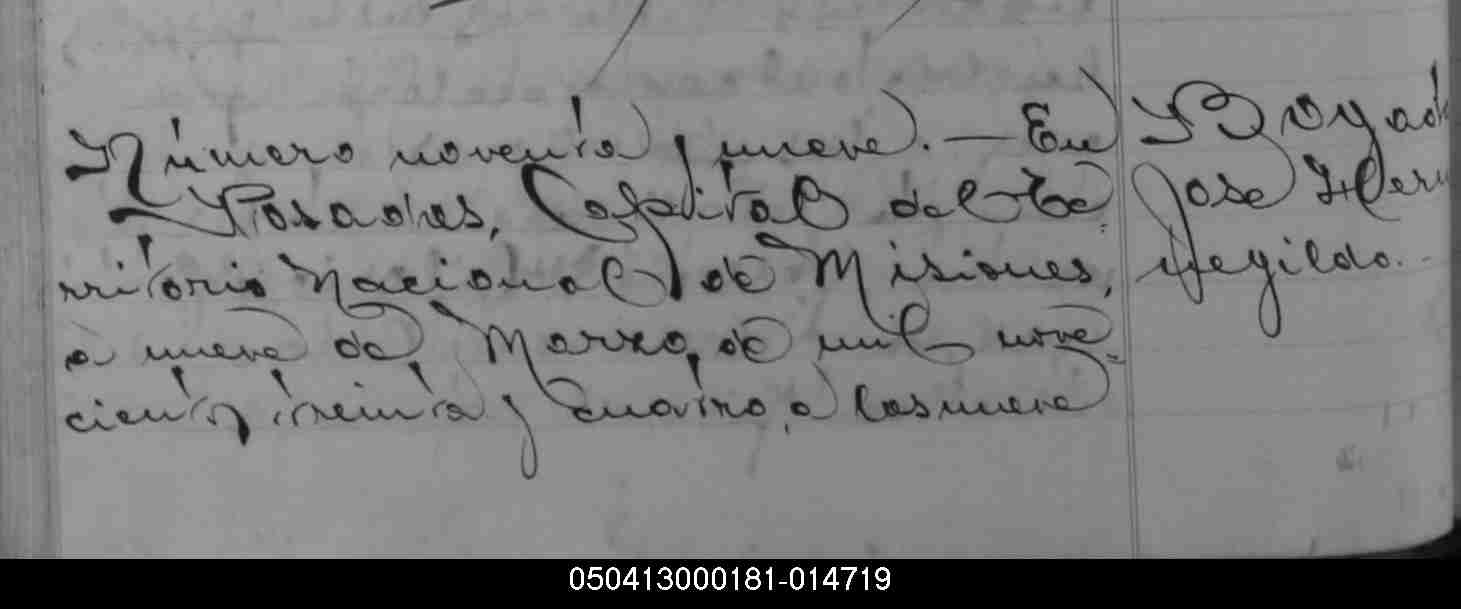 Número noventa y nueve. — En
Posadas, Capital del Te
rritorio Nacional de Misiones,
a nueve de Marzo, de mil nove
cientos treinta y cuatro, a las nueve
Jose Her
megildo.
050413000181-014719